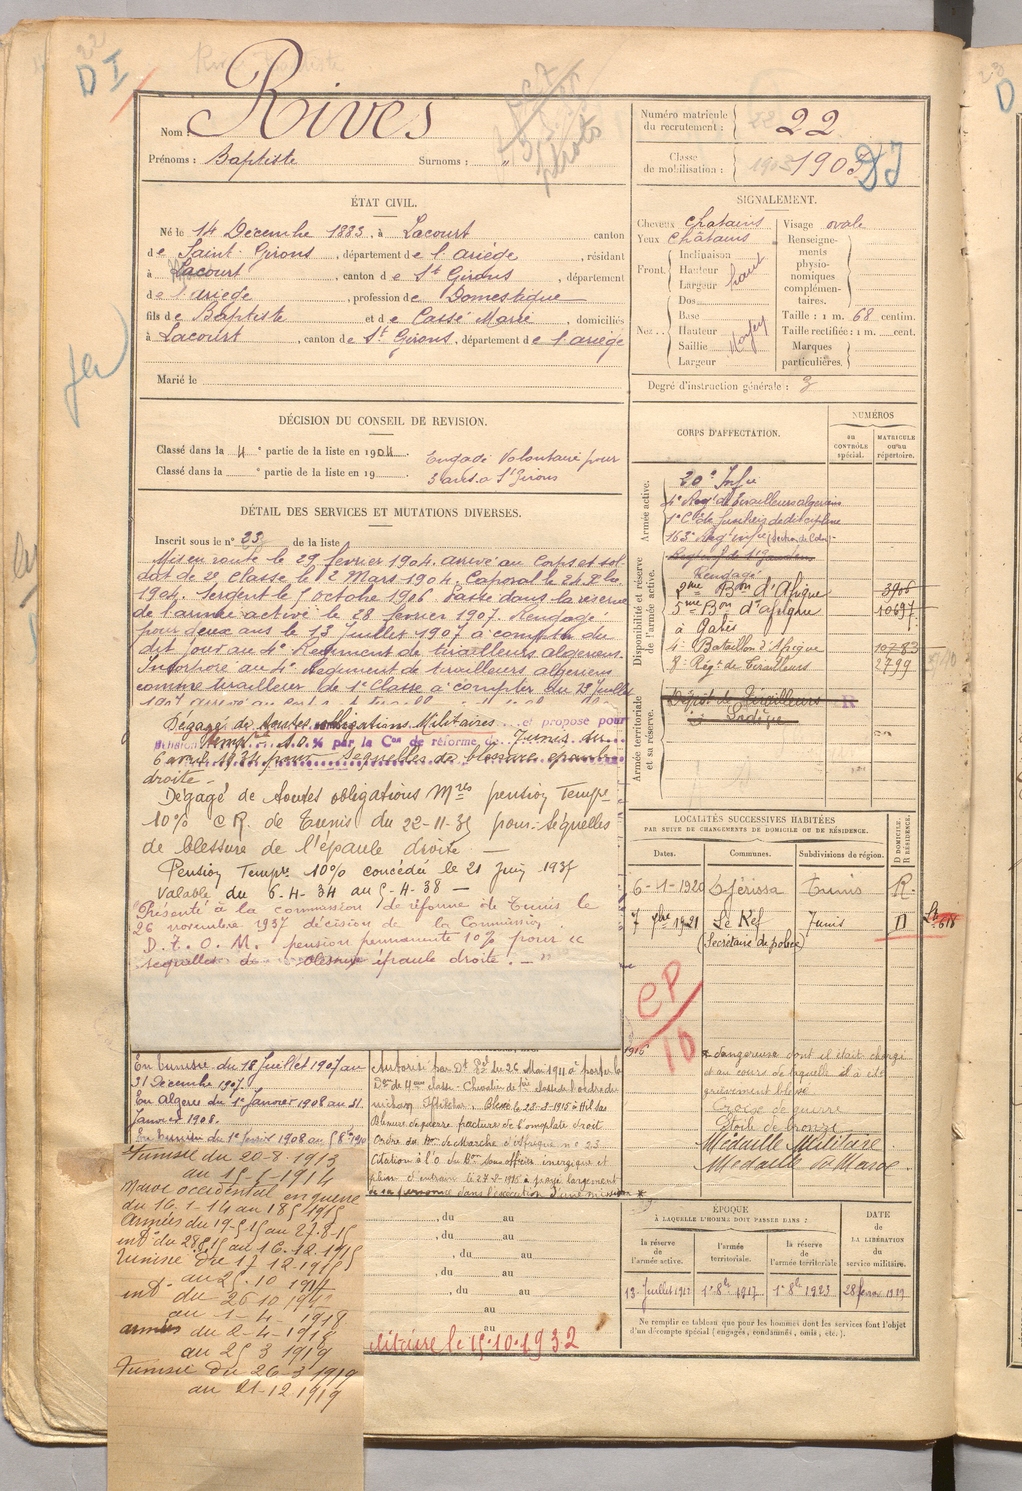 22
D I
Nom : Rives
Prénoms : Baptiste Surnoms : "
photo
Numéro matricule du recrutement : 22
Classe de mobilisation : 1903
DI
ÉTAT CIVIL.
Né le 14 Décembre 1883, à Lacourt canton
de Saint-Girons, département de l'ariège, résidant
à Lacourt, canton de St Girons, département
de l'ariège, profession de Domestique
fils de Baptiste et de Cassé Marie, domiciliés
à Lacourt, canton de St Girons, département de l'ariège
Marié le
SIGNALEMENT.
Cheveux chatains
Yeux châtains
Front. Inclinaison
Hauteur haut
Largeur
Dos
Nez. Base
Hauteur Moyen
Saillie
Largeur
Visage ovale
Renseignements physionomiques complémentaires.
Taille : 1 m. 68 centim.
Taille rectifiée : 1 m. cent.
Marques particulières.
Degré d'instruction générale : 3
DÉCISION DU CONSEIL DE REVISION.
Classé dans la 4e partie de la liste en 1904.
Classé dans la e partie de la liste en 19
Engagé Volontaire pour
3 ans à St Girons
DÉTAIL DES SERVICES ET MUTATIONS DIVERSES.
Inscrit sous le n° 23 de la liste
Mis en route le 29 février 1904. arrivé au Corps et sol-
dat de 2e Classe le 2 Mars 1904. Caporal le 24 8bre
1904. Sergent le 5 octobre 1906. Passé dans la réserve
de l'armée active le 28 février 1907. Rengagé
pour deux ans le 13 Juillet 1907 à compter du
dit jour au 4e Régiment de tirailleurs algériens.
Incorporé au 4e régiment de tirailleurs algériens
comme tirailleur de 1e Classe à compter du 13 Juillet
Dégagé de toutes obligations Militaires et proposé pour
pension Tempre 10 % par la Con de réforme de Tunis du
6 avril 1934 pour sequelles de blessure épaule
droite -
Dégagé de toutes obligations Mres pension Tempre
10% C.R. de Tunis du 22-11-35 pour séquelles
de blessure de l'épaule droite -
Pension Tempre 10% concédée le 21 Juin 1935
Valable du 6-4-34 au 5-4-38 -
Présenté à la commission de réforme de Tunis le
26 novembre 1937 décision de la Commission
D.t.O.M. pension permanente 10% pour
sequelles de blessure épaule droite. -
CORPS D'AFFECTATION.
NUMÉROS
au CONTRÔLE spécial.
MATRICULE ou au répertoire.
Armée active.
20e Infie
4e Regt de Tirailleurs algériens
1e Cie de fusiliers de discipline
163e Regt Infie
Disponibilité et réserve de l'armée active.
Rengagé
2me Bon d'Afrique 3906
5me Bon d'afrique 10697
à Gabès
4e Bataillon d'Afrique 10783
8e Régt de Tirailleurs 2799
Armée territoriale et sa réserve.
Dépôt de Tirailleurs R
LOCALITÉS SUCCESSIVES HABITÉES
PAR SUITE DE CHANGEMENTS DE DOMICILE OU DE RÉSIDENCE.
Dates. Communes. Subdivisions de région. D DOMICILE. R RÉSIDENCE.
6-1-1920 Djérissa Tunis R.
7 7bre 1921 Le Kef Tunis D
(Secrétaire de police)
CP
10
1916
dangereuse dont il était chargé
et au cours de laquelle il a été
grièvement blessé
Croix de guerre
Etoile de bronze
Médaille Militaire
Médaille du Maroc
En tunisie du 18 Juillet 1907 au
31 Décembre 1907.
En Algérie du 1e Janvier 1908 au 31
Janvier 1908.
En tunisie du 1e février 1908 au
Autorisé par Dt du 26 Mai 1911 à porter la
Don de 4eme classe - Chevalier de l'ordre du
nicham Iftikhar, Blessé le 28-8-1915
Blessure de guerre fracture de l'omoplate droit
Ordre du Bon de Marche d'Afrique n° 23
Citation à l'O. du Bon sous officier énergique et
plein d'entrain le 27-8-1915 a payé largement
de sa personne dans l'exécution d'une mission
Tunisie du 20-8-1913
au 15-5-1914
Maroc occidental en guerre
du 16-1-14 au 18 5 1915
Armées du 19-5-15 au 27-8-15
int du 28 8 15 au 16-12-1915
Tunisie du 17 12-1915
au 25-10 1917
int du 26 10 1917
au 1-4-1918
armées du 2-4-1918
au 25 3 1919
Tunisie du 26-3 1919
au 21-12 1919
, du au
, du au
, du au
, du au
au
au
litaire le 15.10.1932
ÉPOQUE
À LAQUELLE L'HOMME DOIT PASSER DANS :
la réserve de l'armée active.
l'armée territoriale.
la réserve de l'armée territoriale
DATE DE LA LIBÉRATION du service militaire.
13 Juillet 1917 1e 8bre 1917 1e 8bre 1923
Ne remplir ce tableau que pour les hommes dont les services font l'objet
d'un décompte spécial (engagés, condamnés, omis, etc.).